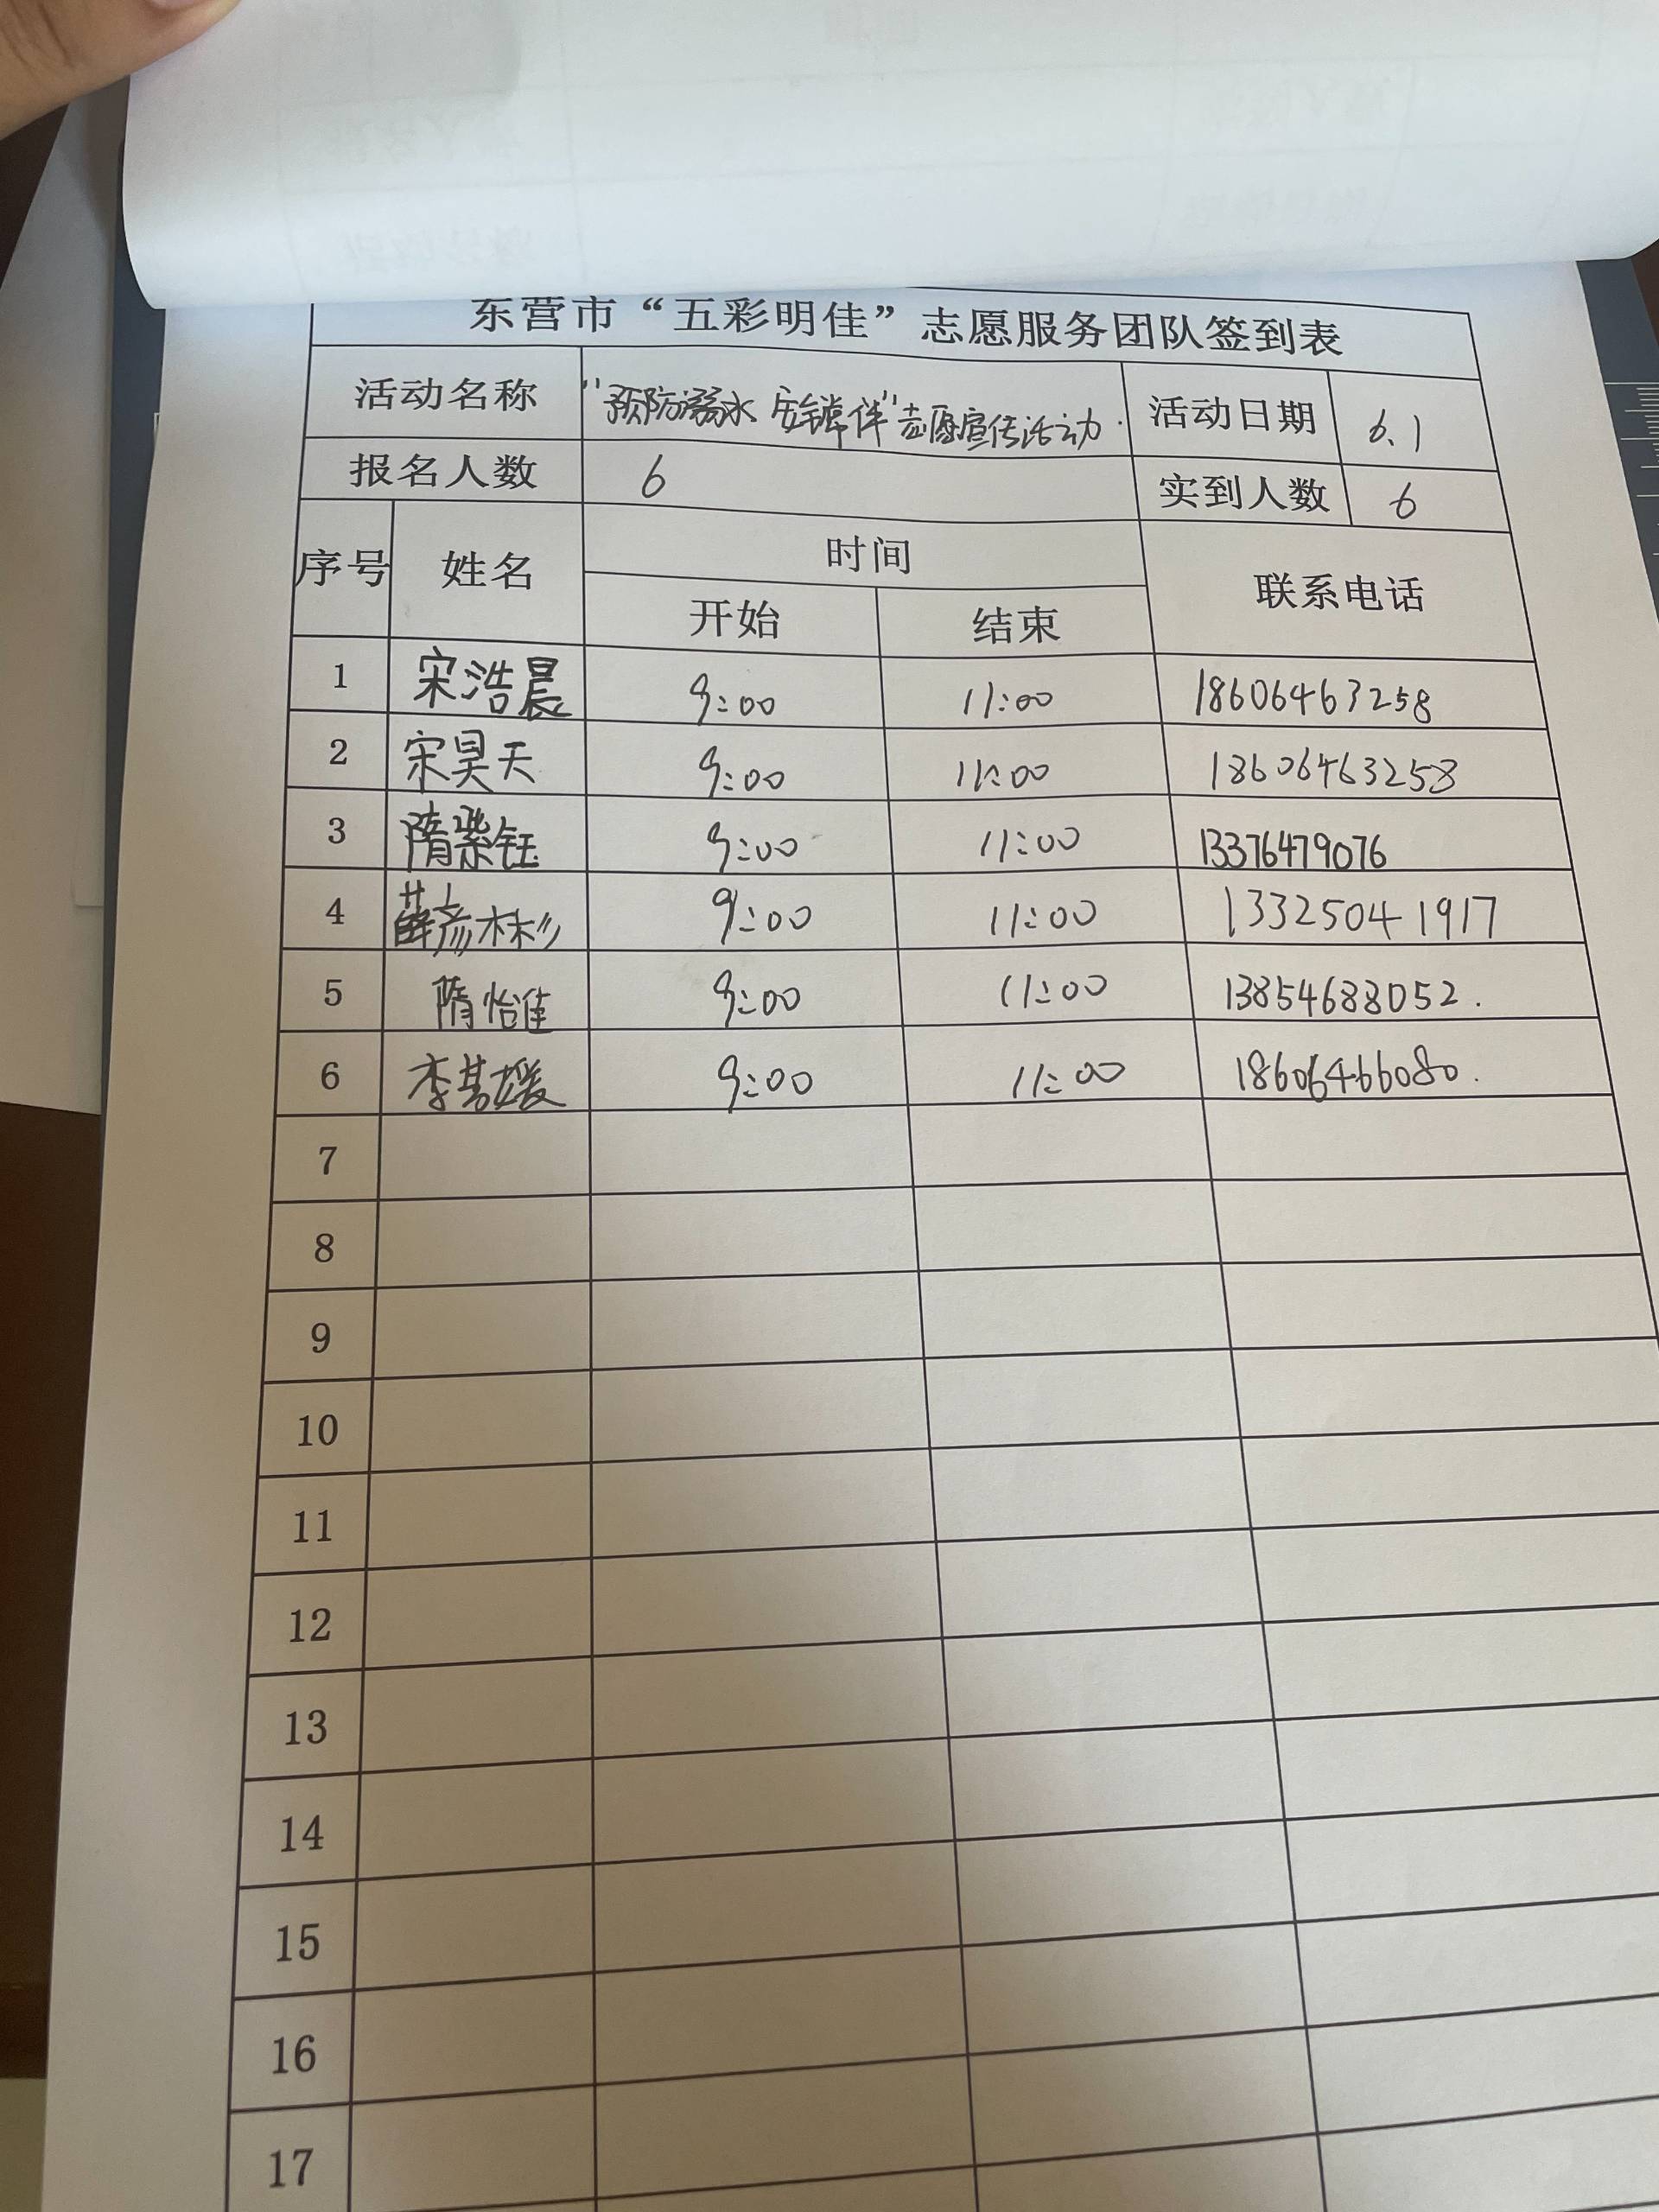 东营市“五彩明佳”志愿服务团队签到表
活动名称 “预防溺水 安全常伴”志愿宣传活动. 活动日期 6.1
报名人数 6 实到人数 6
序号 姓名 时间 联系电话
开始 结束
1 宋浩晨 9:00 11:00 18606463258
2 宋昊天 9:00 11:00 18606463258
3 隋紫钰 9:00 11:00 13376479076
4 薛彦彬 9:00 11:00 13325041917
5 隋怡佳 9:00 11:00 13854688052.
6 李慕媛 9:00 11:00 18606466080.
7
8
9
10
11
12
13
14
15
16
17